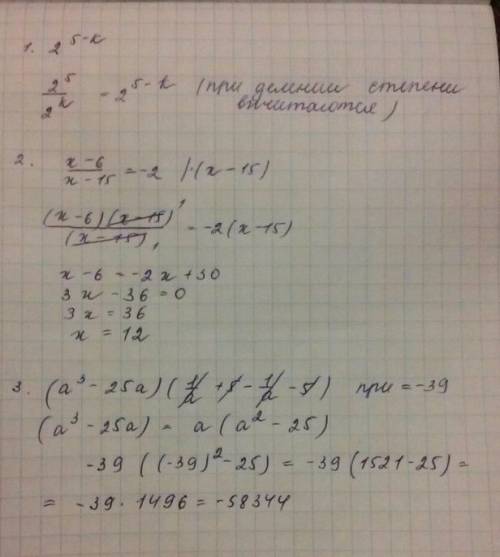 1. 2^(5-k)
2^5/2^k = 2^(5-k) (при делении степени
вычитаются)
2. (x-6)/(x-15) = -2 |·(x-15)
(x-6)(x-15)¹/(x-15)₁ = -2(x-15)
x-6 = -2x+30
3x-36=0
3x=36
x=12
3. (a³-25a)(1/a+5-1/a-5) при =-39
(a³-25a) = a(a²-25)
-39((-39)²-25) = -39(1521-25) =
= -39·1496 = -58344